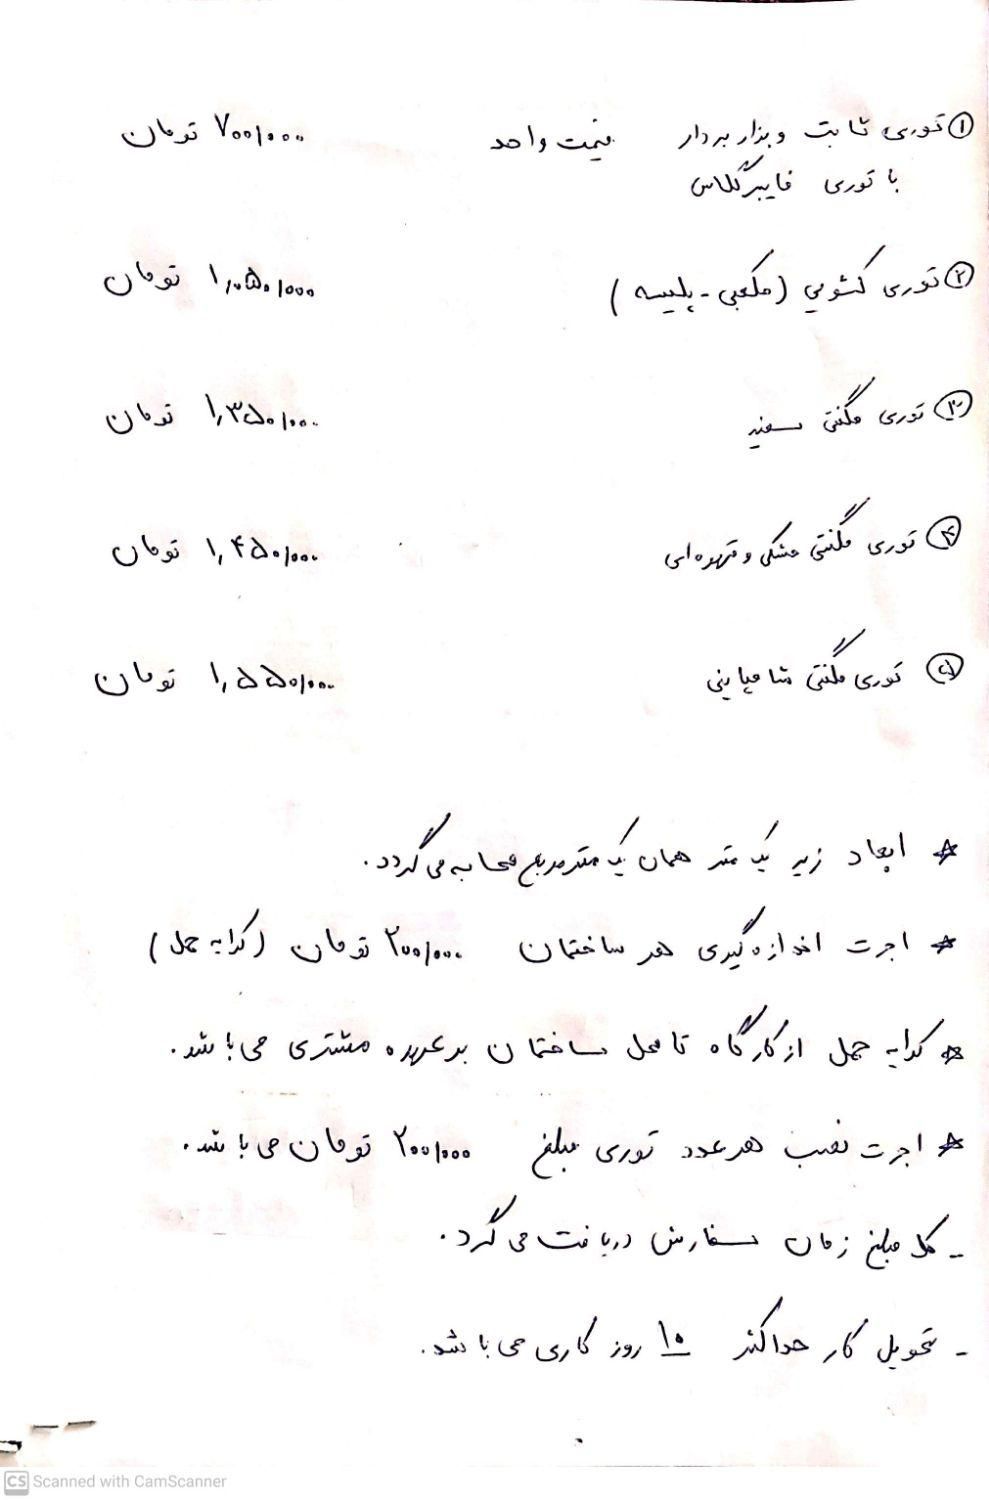 ① توری ثابت و بزار بردار قیمت واحد ۷۰۰/۰۰۰ تومان
با توری فایبرگلاس
② توری کشویی (مکعبی - پلیسه) ۱,۰۵۰/۰۰۰ تومان
③ توری مگنتی سفید ۱,۳۵۰/۰۰۰ تومان
④ توری مگنتی مشکی و قهوه‌ای ۱,۴۵۰/۰۰۰ تومان
⑤ توری مگنتی شامپاینی ۱,۵۵۰/۰۰۰ تومان
* ابعاد زیر یک متر همان یک مترمربع محاسبه می‌گردد.
* اجرت اندازه‌گیری هر ساختمان ۲۰۰/۰۰۰ تومان (کرایه حمل)
* کرایه حمل از کارگاه تا محل ساختمان بر عهده مشتری می‌باشد.
* اجرت نصب هر عدد توری مبلغ ۲۰۰/۰۰۰ تومان می‌باشد.
- کل مبلغ زمان سفارش دریافت می‌گردد.
- تحویل کار حداکثر ۱۰ روز کاری می‌باشد.
CS Scanned with CamScanner